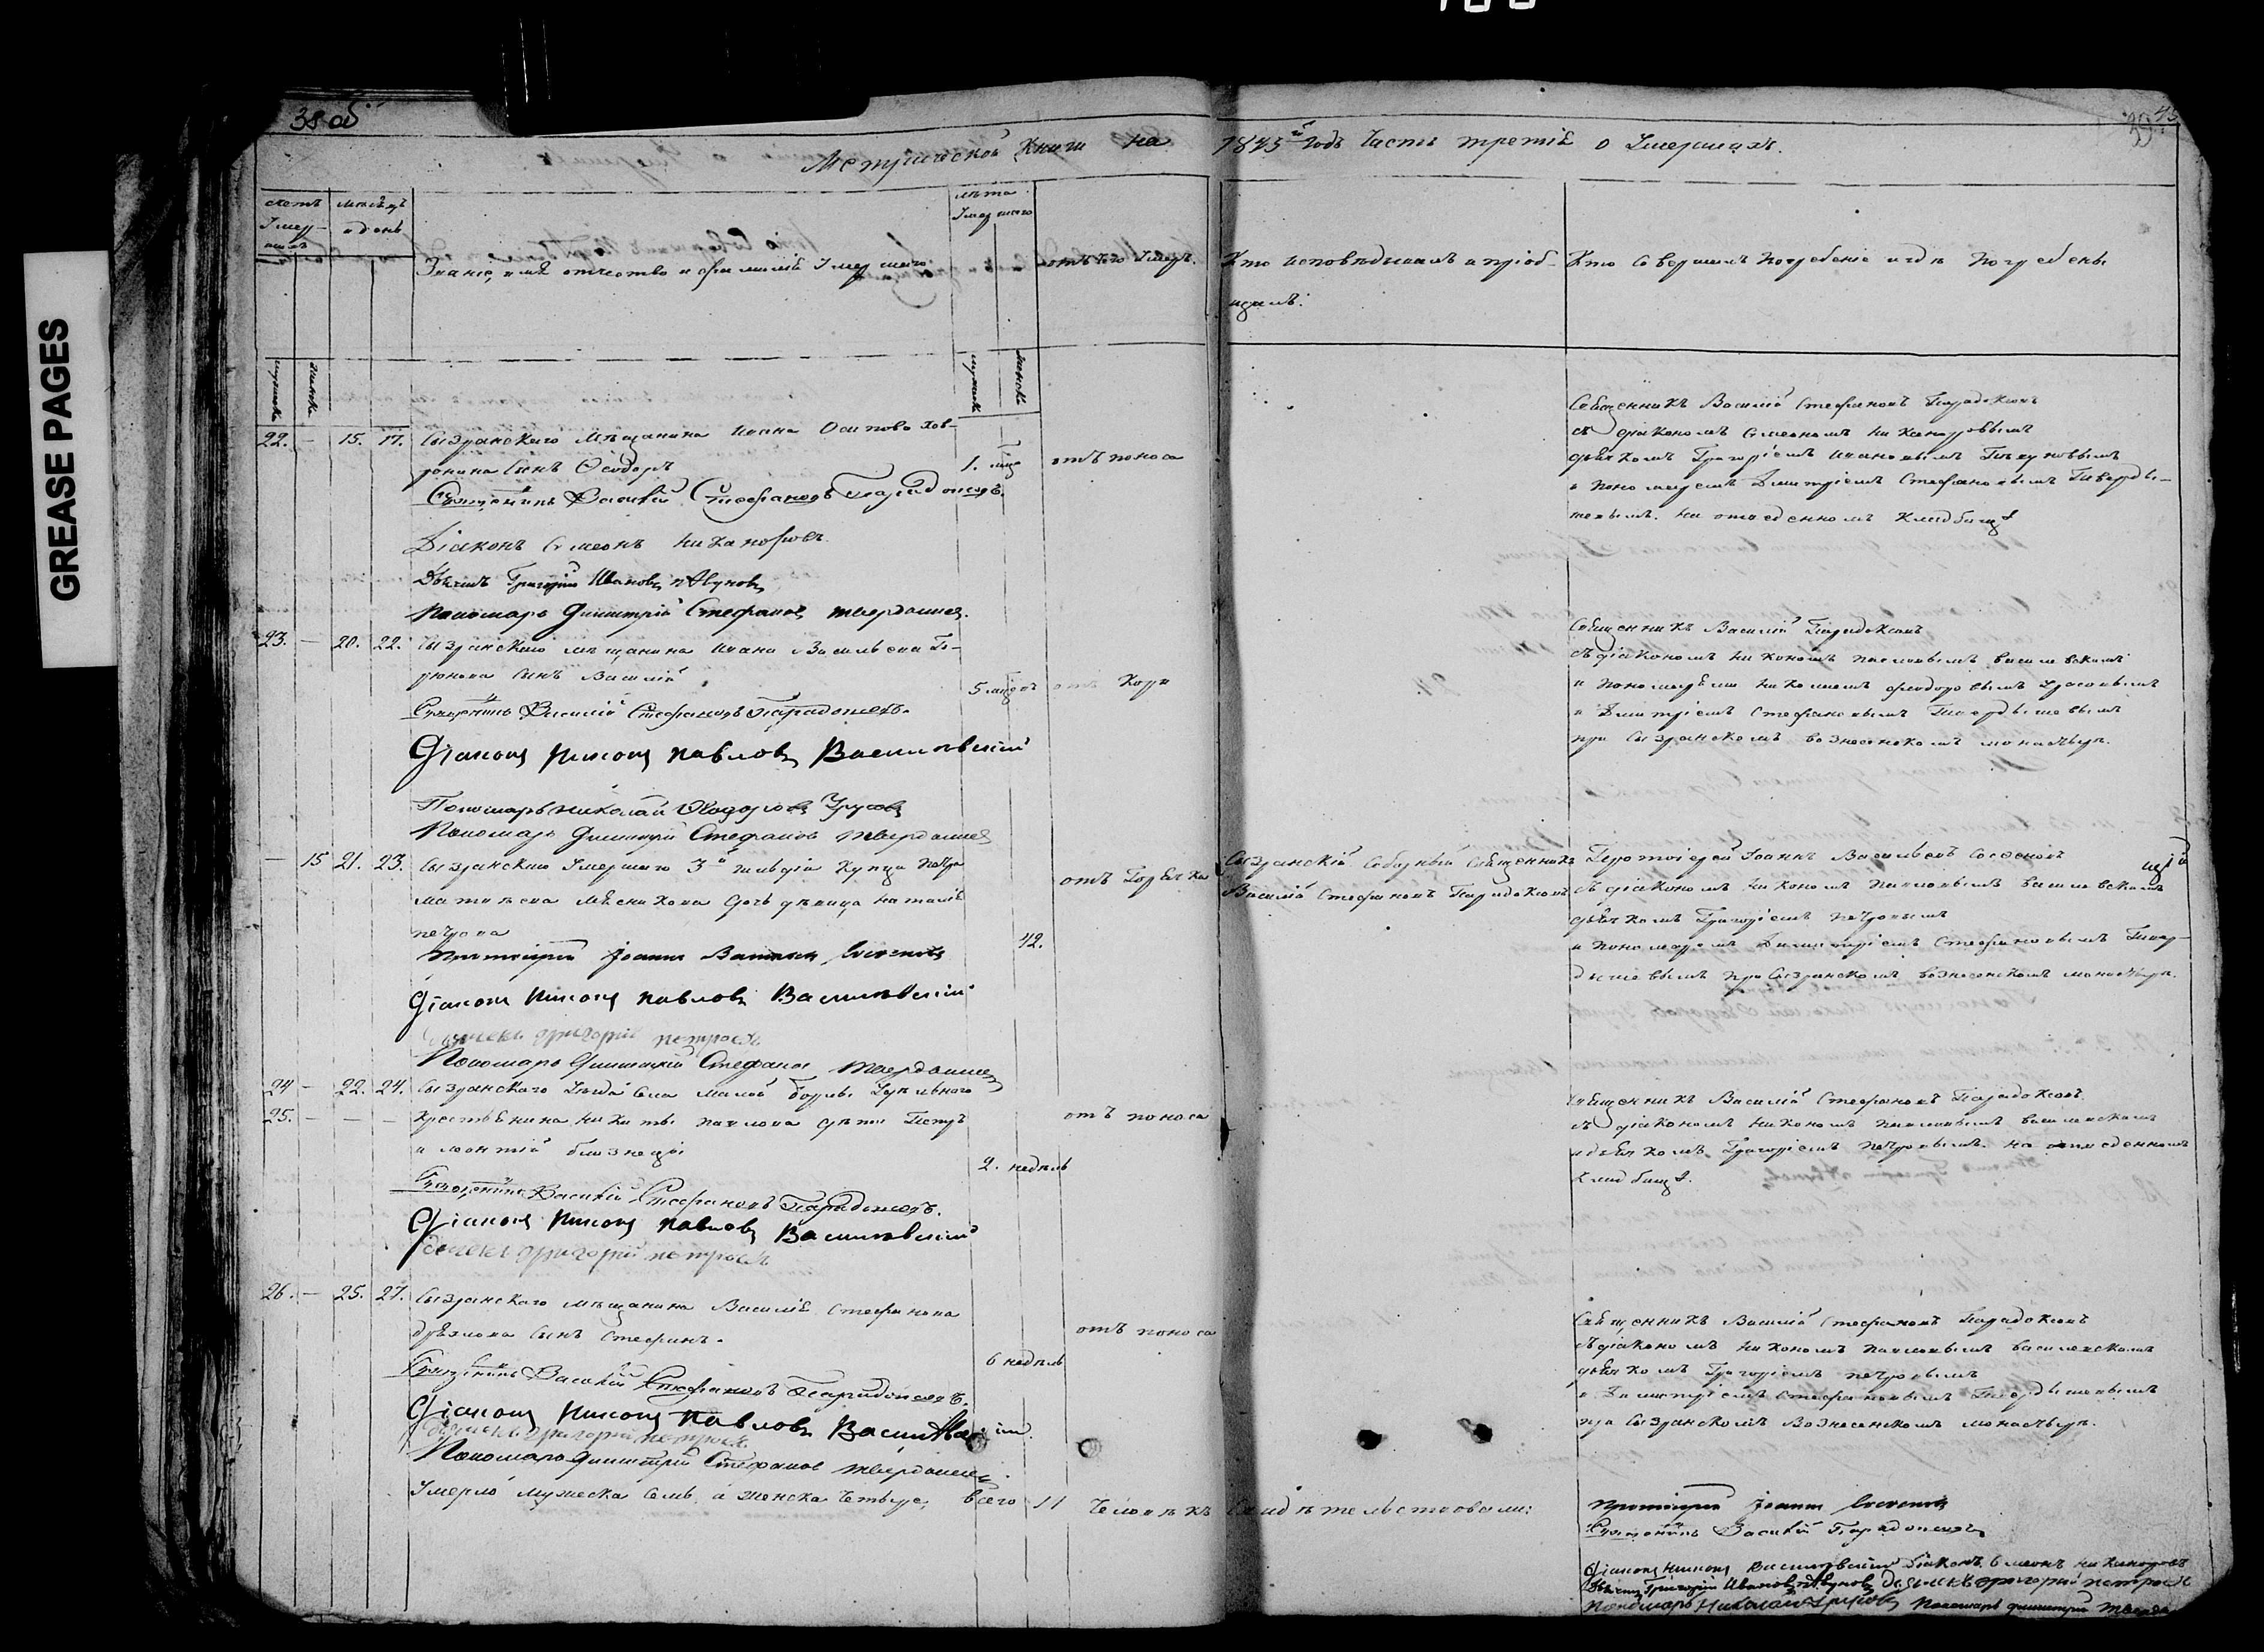 GREASE PAGES
38 об
Метрической Книги на 1845й Годъ Часть третія о Умершихъ.
счетъ Умер-шихъ
мѣсяцъ и день
Званіе, имя отчество и фамилія Умершаго
лѣта Умершаго
отъ чего Умеръ.
Кто исповѣдывалъ и пріоб-
щалъ:
Кто Совершалъ Погребеніе и гдѣ Погребены
мужеска
женска
мужеска
женска
22. — 15. 17. Сызранскаго мѣщанина Ивана Осипова Хов-
ронина Сынъ Ѳеодоръ
1. мѣс
отъ поноса
Священникъ Василій Стефановъ Парадоксовъ.
Діаконъ Симеонъ Никаноровъ.
Дьячекъ Григорій Ивановъ
Пономарь Димитрій Стефановъ Твердышев.
Священникъ Василій Стефановъ Парадоксовъ
съ діакономъ Симеономъ Никаноровымъ
дьячкомъ Григоріемъ Ивановымъ
и пономаремъ Димитріемъ Стефановымъ Тверды-
шевымъ. на отведенномъ Кладбищѣ
23. — 20. 22. Сызранскаго мѣщанина Ивана Васильева
Сынъ Василій
5 мѣсецъ
отъ Кори
Священникъ Василій Стефановъ Парадоксовъ.
Діаконъ Никонъ Павловъ Василевскій
Пономарь Николай Ѳеодоровъ Урусовъ
Пономарь Димитрій Стефановъ Твердышев
Священникъ Василій Парадоксовъ
съ діакономъ Никономъ Павловымъ Василевскимъ
и пономарями Николаемъ Ѳеодоровымъ Урусовымъ
и Димитріемъ Стефановымъ Твердышевымъ
при Сызранскомъ Вознесенскомъ монастырѣ.
— 15 21. 23. Сызранскаго Умершаго 3й гильдіи Купца Петра
Матвѣева Мясникова дочь дѣвица Наталія
Петрова
42.
отъ Горячки
Сызранскій Соборный Священникъ
Василій Стефановъ Парадоксовъ
Протоіерей Іоаннъ Васильевъ Сосновъ
Діаконъ Никонъ Павловъ Василевскій
Дьячекъ Григорій Петровъ
Пономарь Димитрій Стефановъ Твердышев
Протоіерей Іоаннъ Васильевъ Сосновъ
съ діакономъ Никономъ Павловымъ Василевскимъ
дьячкомъ Григоріемъ Петровымъ
и пономаремъ Димитріемъ Стефановымъ Твер-
дышевымъ при Сызранскомъ Вознесенскомъ монастырѣ.
24 — 22. 24. Сызранскаго Уѣзда Села Малой Борлы Удѣльнаго
25. — — — Крестьянина Никиты Павлова дѣти Петръ
и Леонтій близнецы
2. недѣль
отъ поноса
Священникъ Василій Стефановъ Парадоксовъ.
Діаконъ Никонъ Павловъ Василевскій
Дьячекъ Григорій Петровъ
Священникъ Василій Стефановъ Парадоксовъ.
съ діакономъ Никономъ Павловымъ Василевскимъ
и дьячкомъ Григоріемъ Петровымъ. на отведенномъ
Кладбищѣ.
26. — 25. 27. Сызранскаго мѣщанина Василія Стефанова
Сынъ Стефанъ.
6 недѣль
отъ поноса
Священникъ Василій Стефановъ Парадоксовъ.
Діаконъ Никонъ Павловъ Василевскій.
Дьячекъ Григорій Петровъ
Пономарь Димитрій Стефановъ Твердышев.
Священникъ Василій Стефановъ Парадоксовъ
съ діакономъ Никономъ Павловымъ Василевскимъ
дьячкомъ Григоріемъ Петровымъ
и Димитріемъ Стефановымъ Твердышевымъ
при Сызранскомъ Вознесенскомъ монастырѣ.
Умерло мужеска Семь, а женска Четыре, всего 11 Человѣкъ Свидѣтельствовали:
Протоіерей Іоаннъ Сосновъ
Священникъ Василій Парадоксовъ
Діаконъ Никонъ Василевскій Діаконъ Симеонъ Никаноровъ
Дьячекъ Григорій Ивановъ Дьячекъ Григорій Петровъ
Пономарь Николай Урусовъ Пономарь Димитрій Тверды